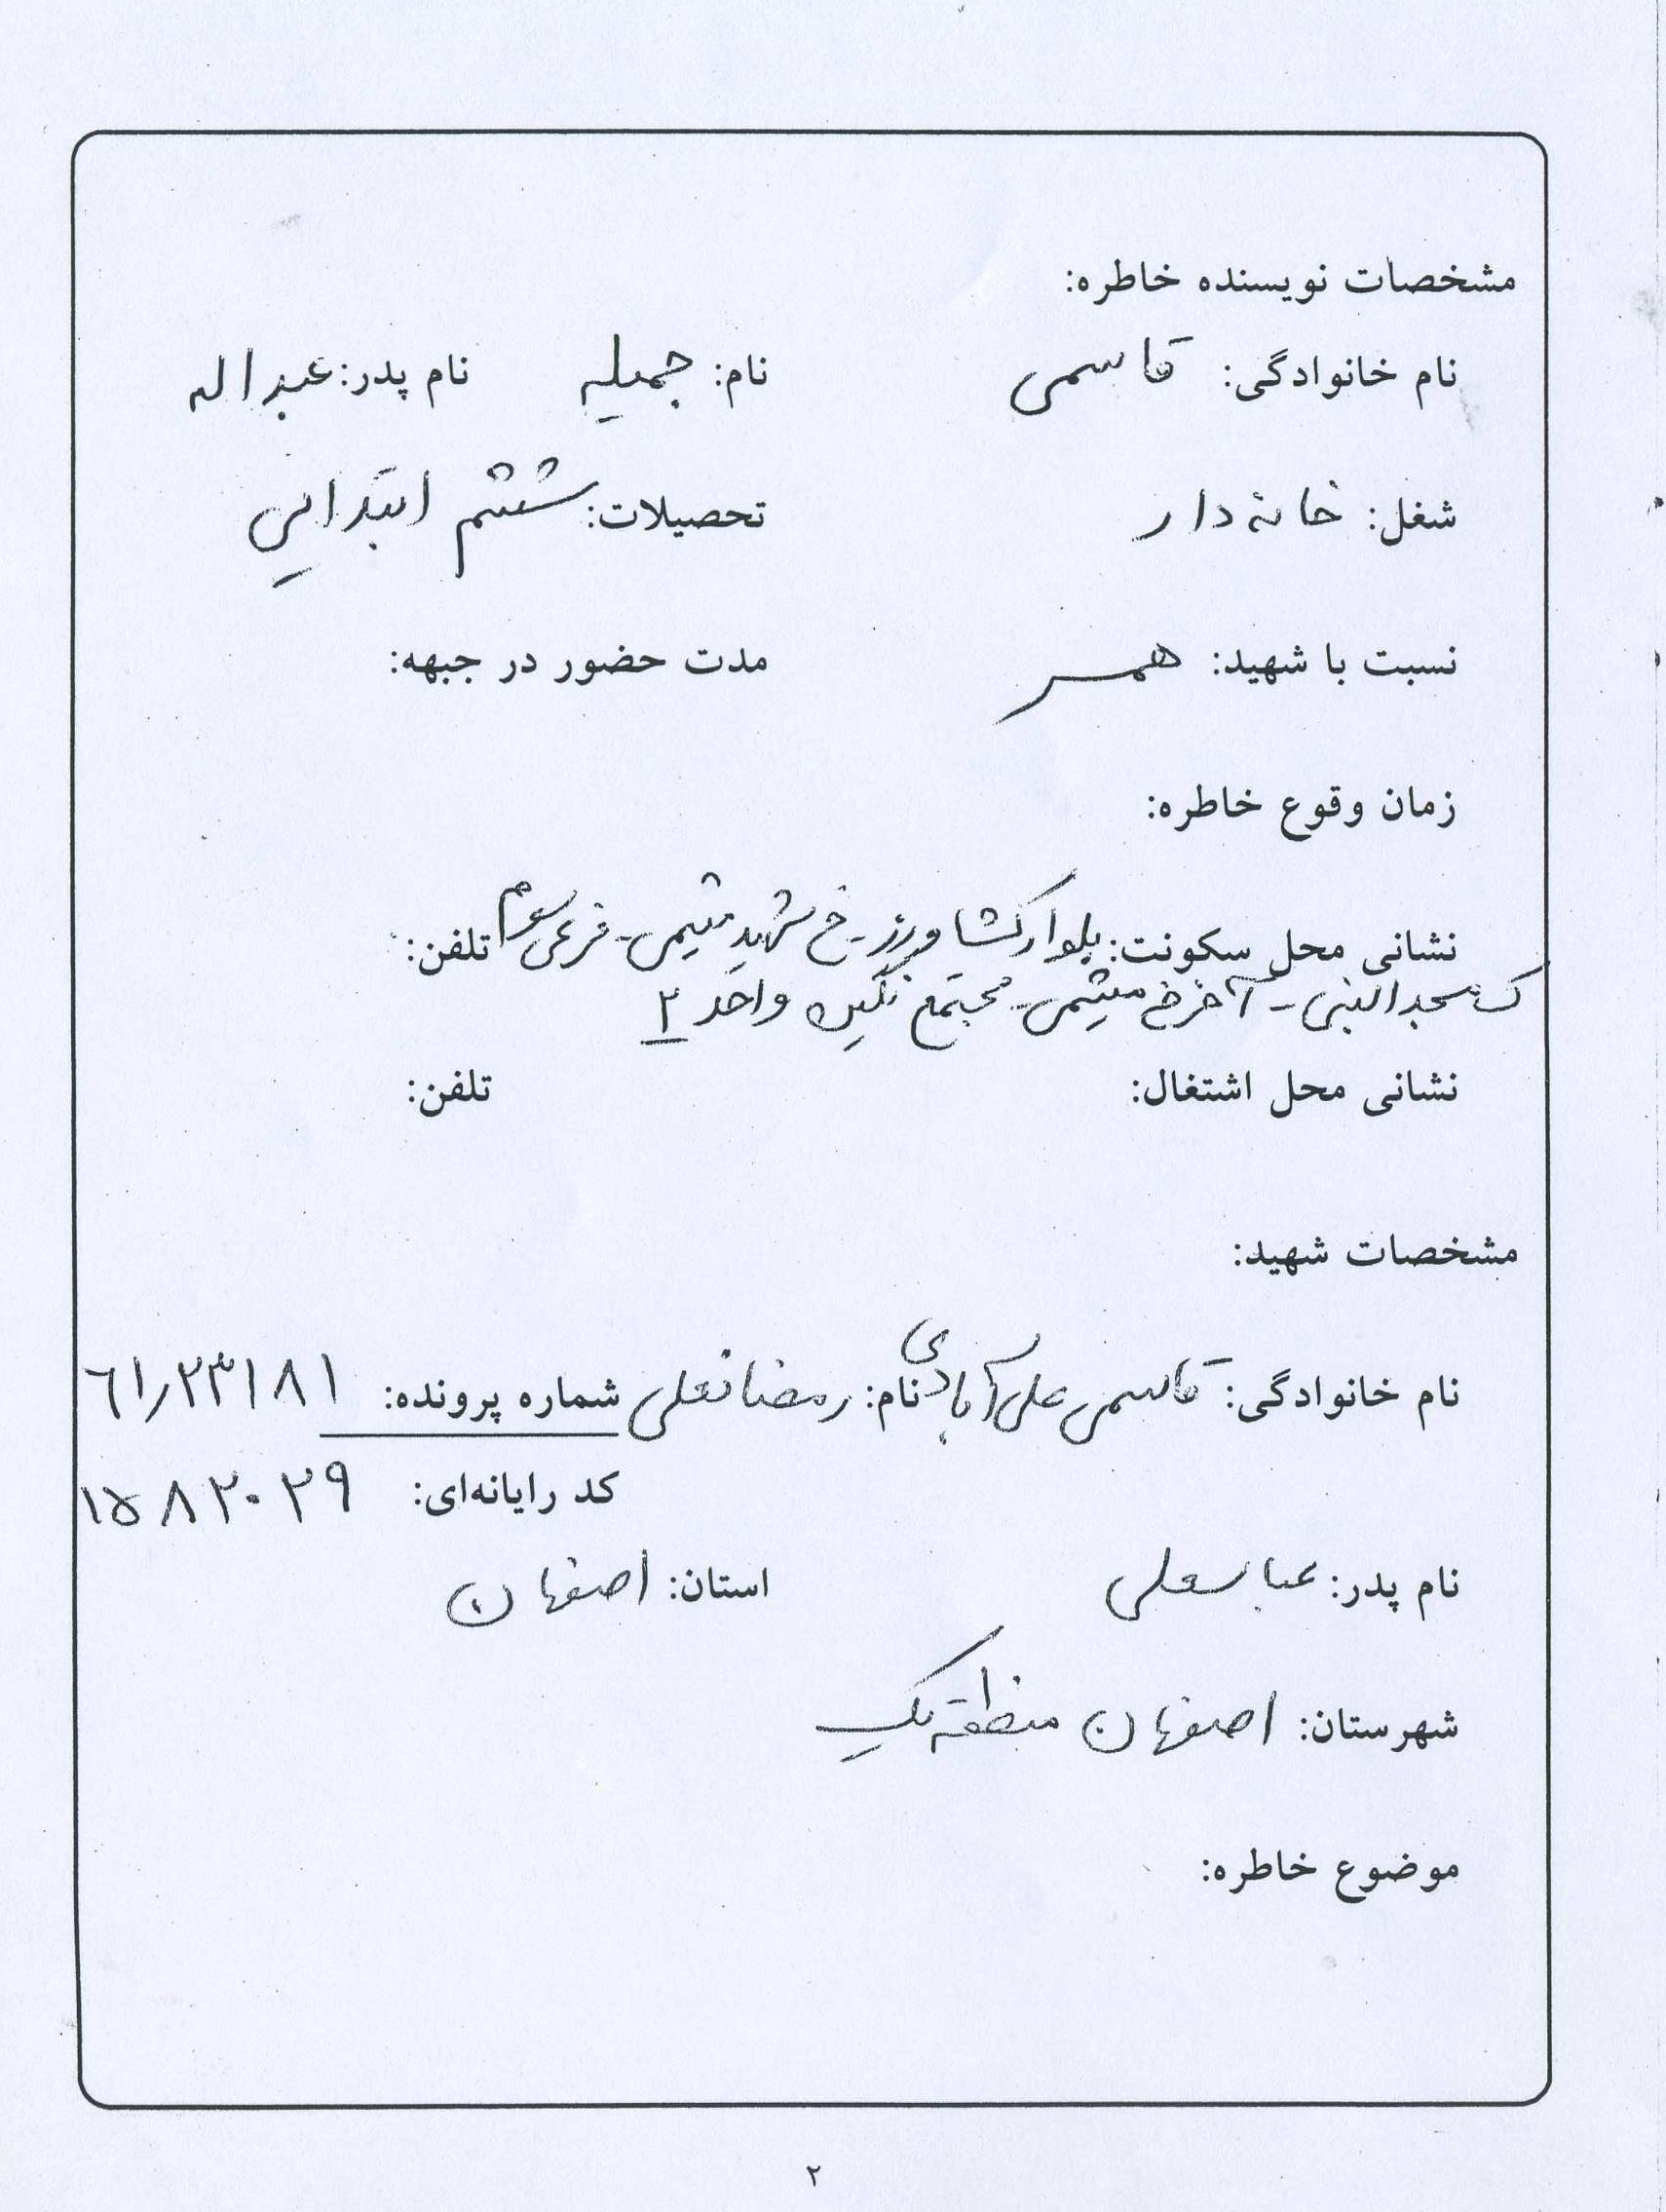 مشخصات نویسنده خاطره:
نام خانوادگی: قاسمی نام: جمیله نام پدر: عبداله
شغل: خانه دار تحصیلات: ششم ابتدایی
نسبت با شهید: همسر مدت حضور در جبهه:
زمان وقوع خاطره:
نشانی محل سکونت: بلوار کشاورز - خ شهید میثمی - فرعی سوم تلفن:
ک مسجد النبی - آخر خ میثمی - مجتمع نگین واحد ۲
نشانی محل اشتغال: تلفن:
مشخصات شهید:
نام خانوادگی: قاسمی علی آبادی نام: رمضانعلی شماره پرونده: ۶۱٫۲۳۱۸۱
کد رایانه‌ای: ۱۵۸۲۰۲۹
نام پدر: عباسعلی استان: اصفهان
شهرستان: اصفهان منطقه یک
موضوع خاطره:
۲